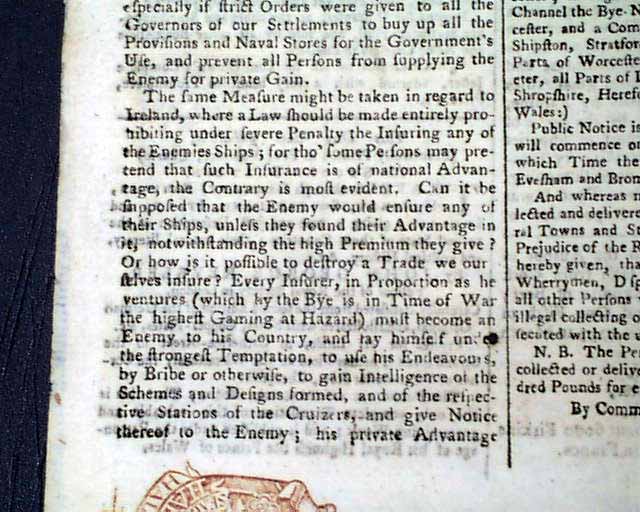 especially if strict Orders were given to all the
Governors of our Settlements to buy up all the
Provisions and Naval Stores for the Government's
Use, and prevent all Persons from supplying the
Enemy for private Gain.
The same Measure might be taken in regard to
Ireland, where a Law should be made entirely pro-
hibiting under severe Penalty the Insuring any of
the Enemies Ships; for tho' some Persons may pre-
tend that such Insurance is of national Advan-
tage, the Contrary is most evident. Can it be
supposed that the Enemy would ensure any of
their Ships, unless they found their Advantage in
it, notwithstanding the high Premium they give?
Or how is it possible to destroy a Trade we our
selves insure? Every Insurer, in Proportion as he
ventures (which by the Bye is in Time of War
the highest Gaming at Hazard) must become an
Enemy to his Country, and lay himself under
the strongest Temptation, to use his Endeavours,
by Bribe or otherwise, to gain Intelligence of the
Schemes and Designs formed, and of the respec-
tive Stations of the Cruizers, and give Notice
thereof to the Enemy; his private Advantage
Channel the Bye-
cester, and a Com
Shipston, Stratfor
Parts of Worceste
eter, all Parts of
Shropshire, Heref
Wales:)
Public Notice is
will commence o
which Time the
Evesham and Brom
And whereas
lected and delivere
ral Towns and St
Prejudice of the
hereby given, tha
Wherrymen, D
all other Persons
illegal collecting o
secuted with the
N. B. The Pe
collected or delive
dred Pounds for
By Comm